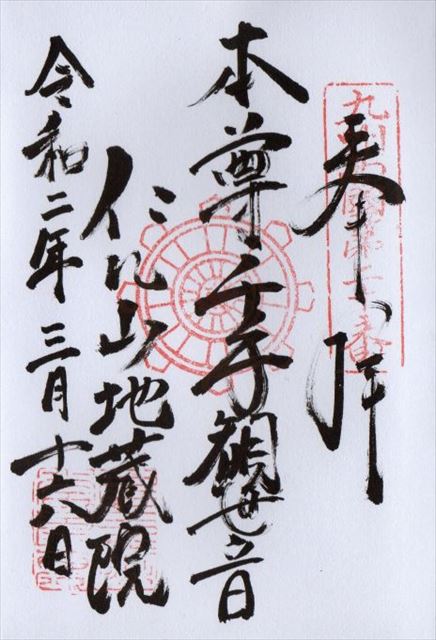 九州西国第二十番
奉拝
本尊千手観世音
仁比山地蔵院
令和二年三月十六日